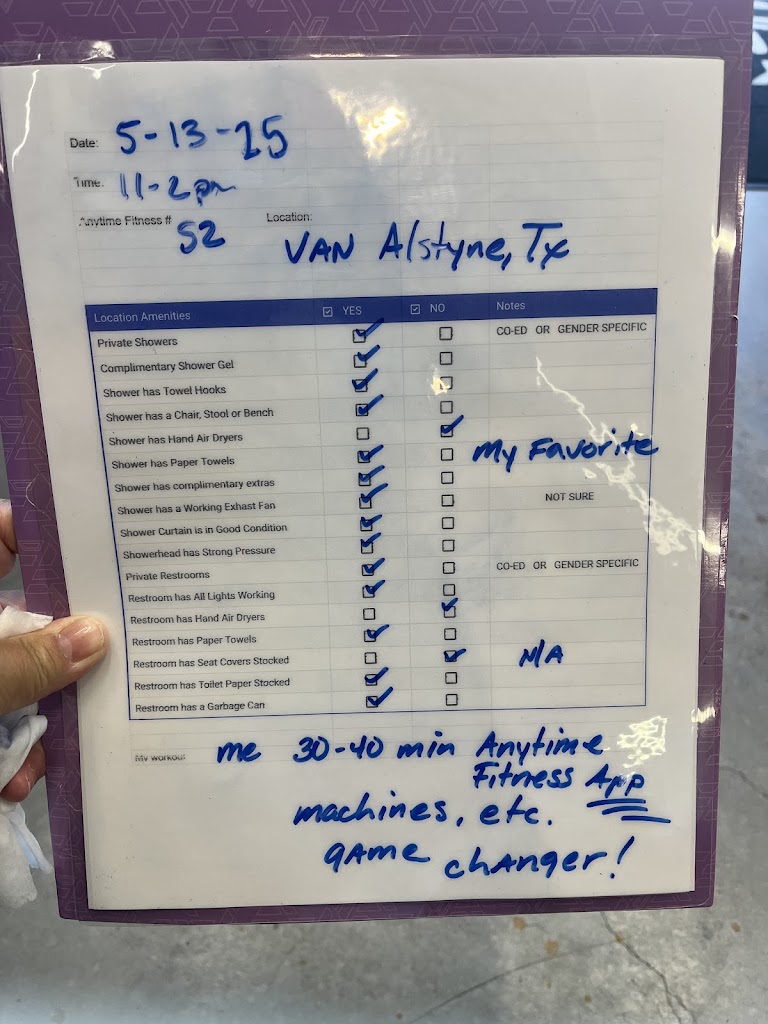 Date: 5-13-25
Time: 11-2pm
Anytime Fitness # 52 Location: VAN Alstyne, Tx
Location Amenities YES NO Notes
Private Showers CO-ED OR GENDER SPECIFIC
Complimentary Shower Gel
Shower has Towel Hooks
Shower has a Chair, Stool or Bench
Shower has Hand Air Dryers
Shower has Paper Towels My Favorite
Shower has complimentary extras
Shower has a Working Exhast Fan NOT SURE
Shower Curtain is in Good Condition
Showerhead has Strong Pressure
Private Restrooms CO-ED OR GENDER SPECIFIC
Restroom has All Lights Working
Restroom has Hand Air Dryers
Restroom has Paper Towels
Restroom has Seat Covers Stocked N/A
Restroom has Toilet Paper Stocked
Restroom has a Garbage Can
My workout me 30-40 min Anytime
Fitness App
machines, etc.
game changer!